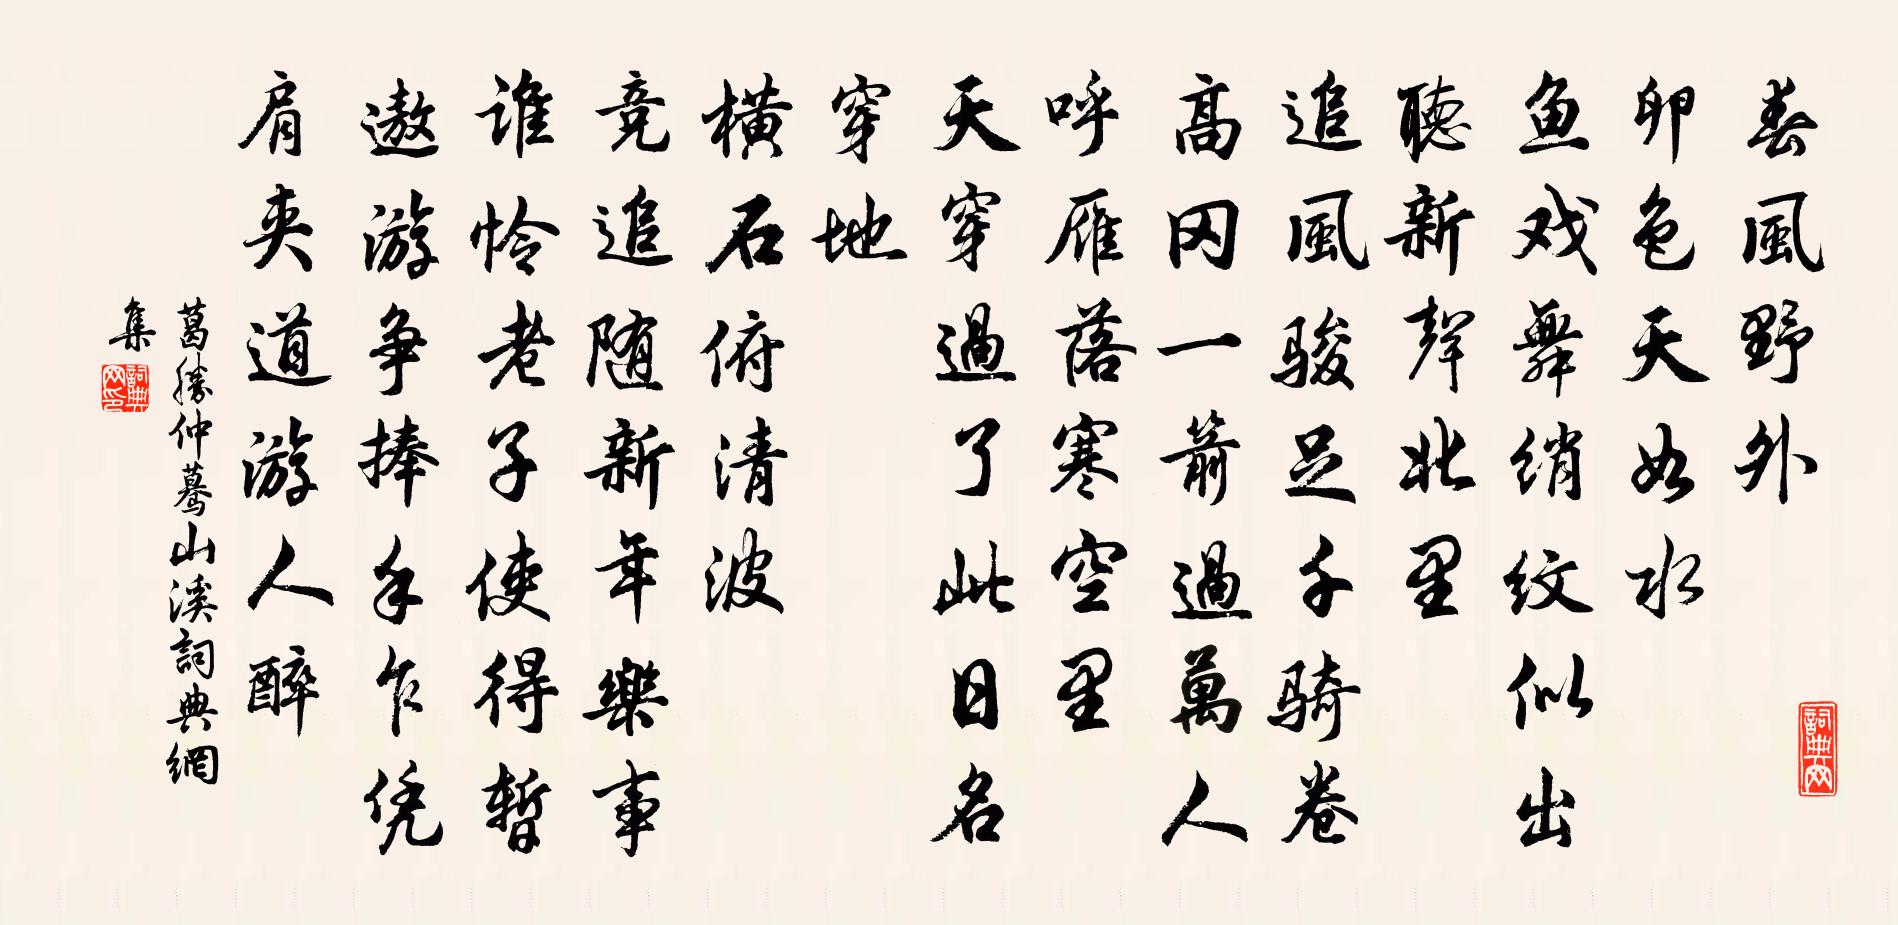 春風野外
卵色天如水
鱼戏舞绡纹似出
聽新聲北里
追風骏足千骑卷
高冈一箭過萬人
呼雁落寒空里
天穿過了此日名
穿地
橫石俯清波
竞追随新年樂事
谁怜老子使得暫
遨游争捧手乍凭
肩夹道游人醉
葛勝仲蓦山溪詞典網
集
詞典网印
詞典网